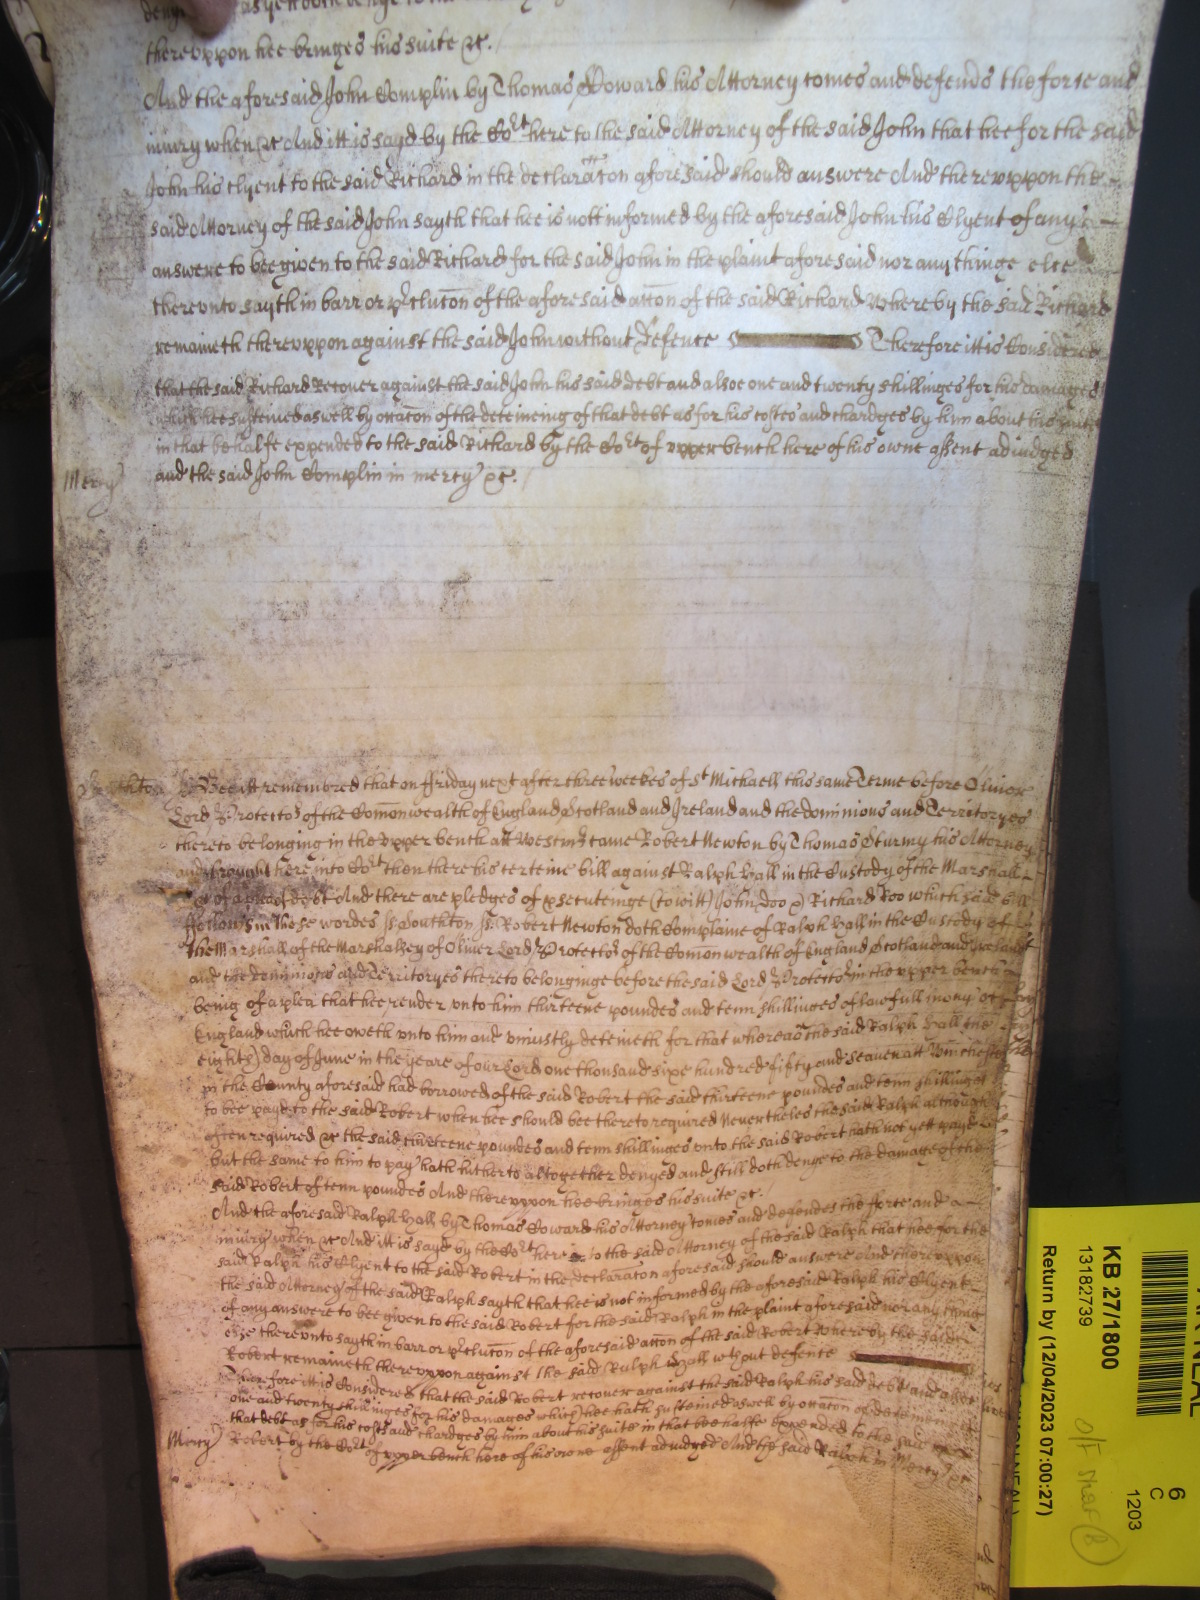 thereuppon hee bringes his suite &c.
And the aforesaid John Complin by Thomas Howard his Attorney comes and defends the force and
iniury when &c And itt is sayd by the Cort here to the said Attorney of the said John that hee for the said
John his Clyent to the said Richard in the declaracon aforesaid should answere And thereuppon the
said Attorney of the said John sayth that hee is nott informed by the aforesaid John his Clyent of any
answere to bee given to the said Richard for the said John in the plaint aforesaid nor any thinge else
thereunto sayth in barr or preclucon of the aforesaid accon of the said Richard Whereby the said Richard
remaineth thereuppon against the said John without defence Therefore itt is Considered
that the said Richard Recover against the said John his said debt and alsoe one and twenty shillinges for his damages
which hee susteined aswell by occacon of the deteineing of that debt as for his costes and chardges by him about his suite
in that behalfe expended to the said Richard by the Cort of upper bench here of his owne assent adiudged
Mercy and the said John Complin in mercy &c.
Bee itt remembred that on ffriday next after three weekes of St Michaell this same Terme before Oliver
Lord Protector of the Comonwealth of England Scotland and Ireland and the dominions and Territoryes
thereto belonging in the upper bench att Westmr came Robert Newton by Thomas Sturmy his Attorney
and brought here into Cort then there his certeine bill against Ralph Hall in the Custody of the Marshall
&c of a plea of debt And there are pledges of prsecuteinge (to witt) John Doo & Richard Roo which said bill
ffollows in these wordes ss. Southton ss. Robert Newton doth Complaine of Ralph Hall in the Custody of
the Marshall of the Marshalsey of Oliver Lord Protector of the Comonwealth of England Scotland and Ireland
and the dominions and Territoryes thereto belonginge before the said Lord Protector in the upper bench
being of a plea that hee render unto him thirteene poundes and tenn shillinges of lawfull mony of
England which hee oweth unto him and uniustly deteineth for that whereas the said Ralph Hall the
eighth day of June in the yeare of our Lord one thousand sixe hundred fifty and seaven att Winchester
in the County aforesaid had borrowed of the said Robert the said thirteene poundes and tenn shillinges
to bee payd to the said Robert when hee should bee thereto required Neverthelesse the said Ralph although
often required &c the said thirteene poundes and tenn shillinges unto the said Robert hath not yett payd
but the same to him to pay hath hitherto altogether denyed and still doth denye to the damage of the
said Robert of tenn poundes And thereuppon hee bringes his suite &c.
And the aforesaid Ralph Hall by Thomas Howard his Attorney comes and defendes the force and
iniury when &c And itt is sayd by the Cort here to the said Attorney of the said Ralph that hee for the
said Ralph his Clyent to the said Robert in the declaracon aforesaid should answere And thereuppon
the said Attorney of the said Ralph sayth that hee is not informed by the aforesaid Ralph his Clyent
of any answere to bee given to the said Robert for the said Ralph in the plaint aforesaid nor any thinge
else thereunto sayth in barr or preclucon of the aforesaid accon of the said Robert Whereby the said
Robert remaineth thereuppon against the said Ralph Hall without defence
Therefore itt is Considered that the said Robert recover against the said Ralph his said debt and alsoe
one and twenty shillinges for his damages which hee hath susteined aswell by occacon of deteineing
that debt as for his costs and chardges by him about his suite in that behalfe expended to the said
Mercy Robert by the Cort of upper bench here of his owne assent adiudged And the said Ralph in Mercy &c
KB 27/1800
13182739
Return by (12/04/2023 07:00:27)
6
C
1203